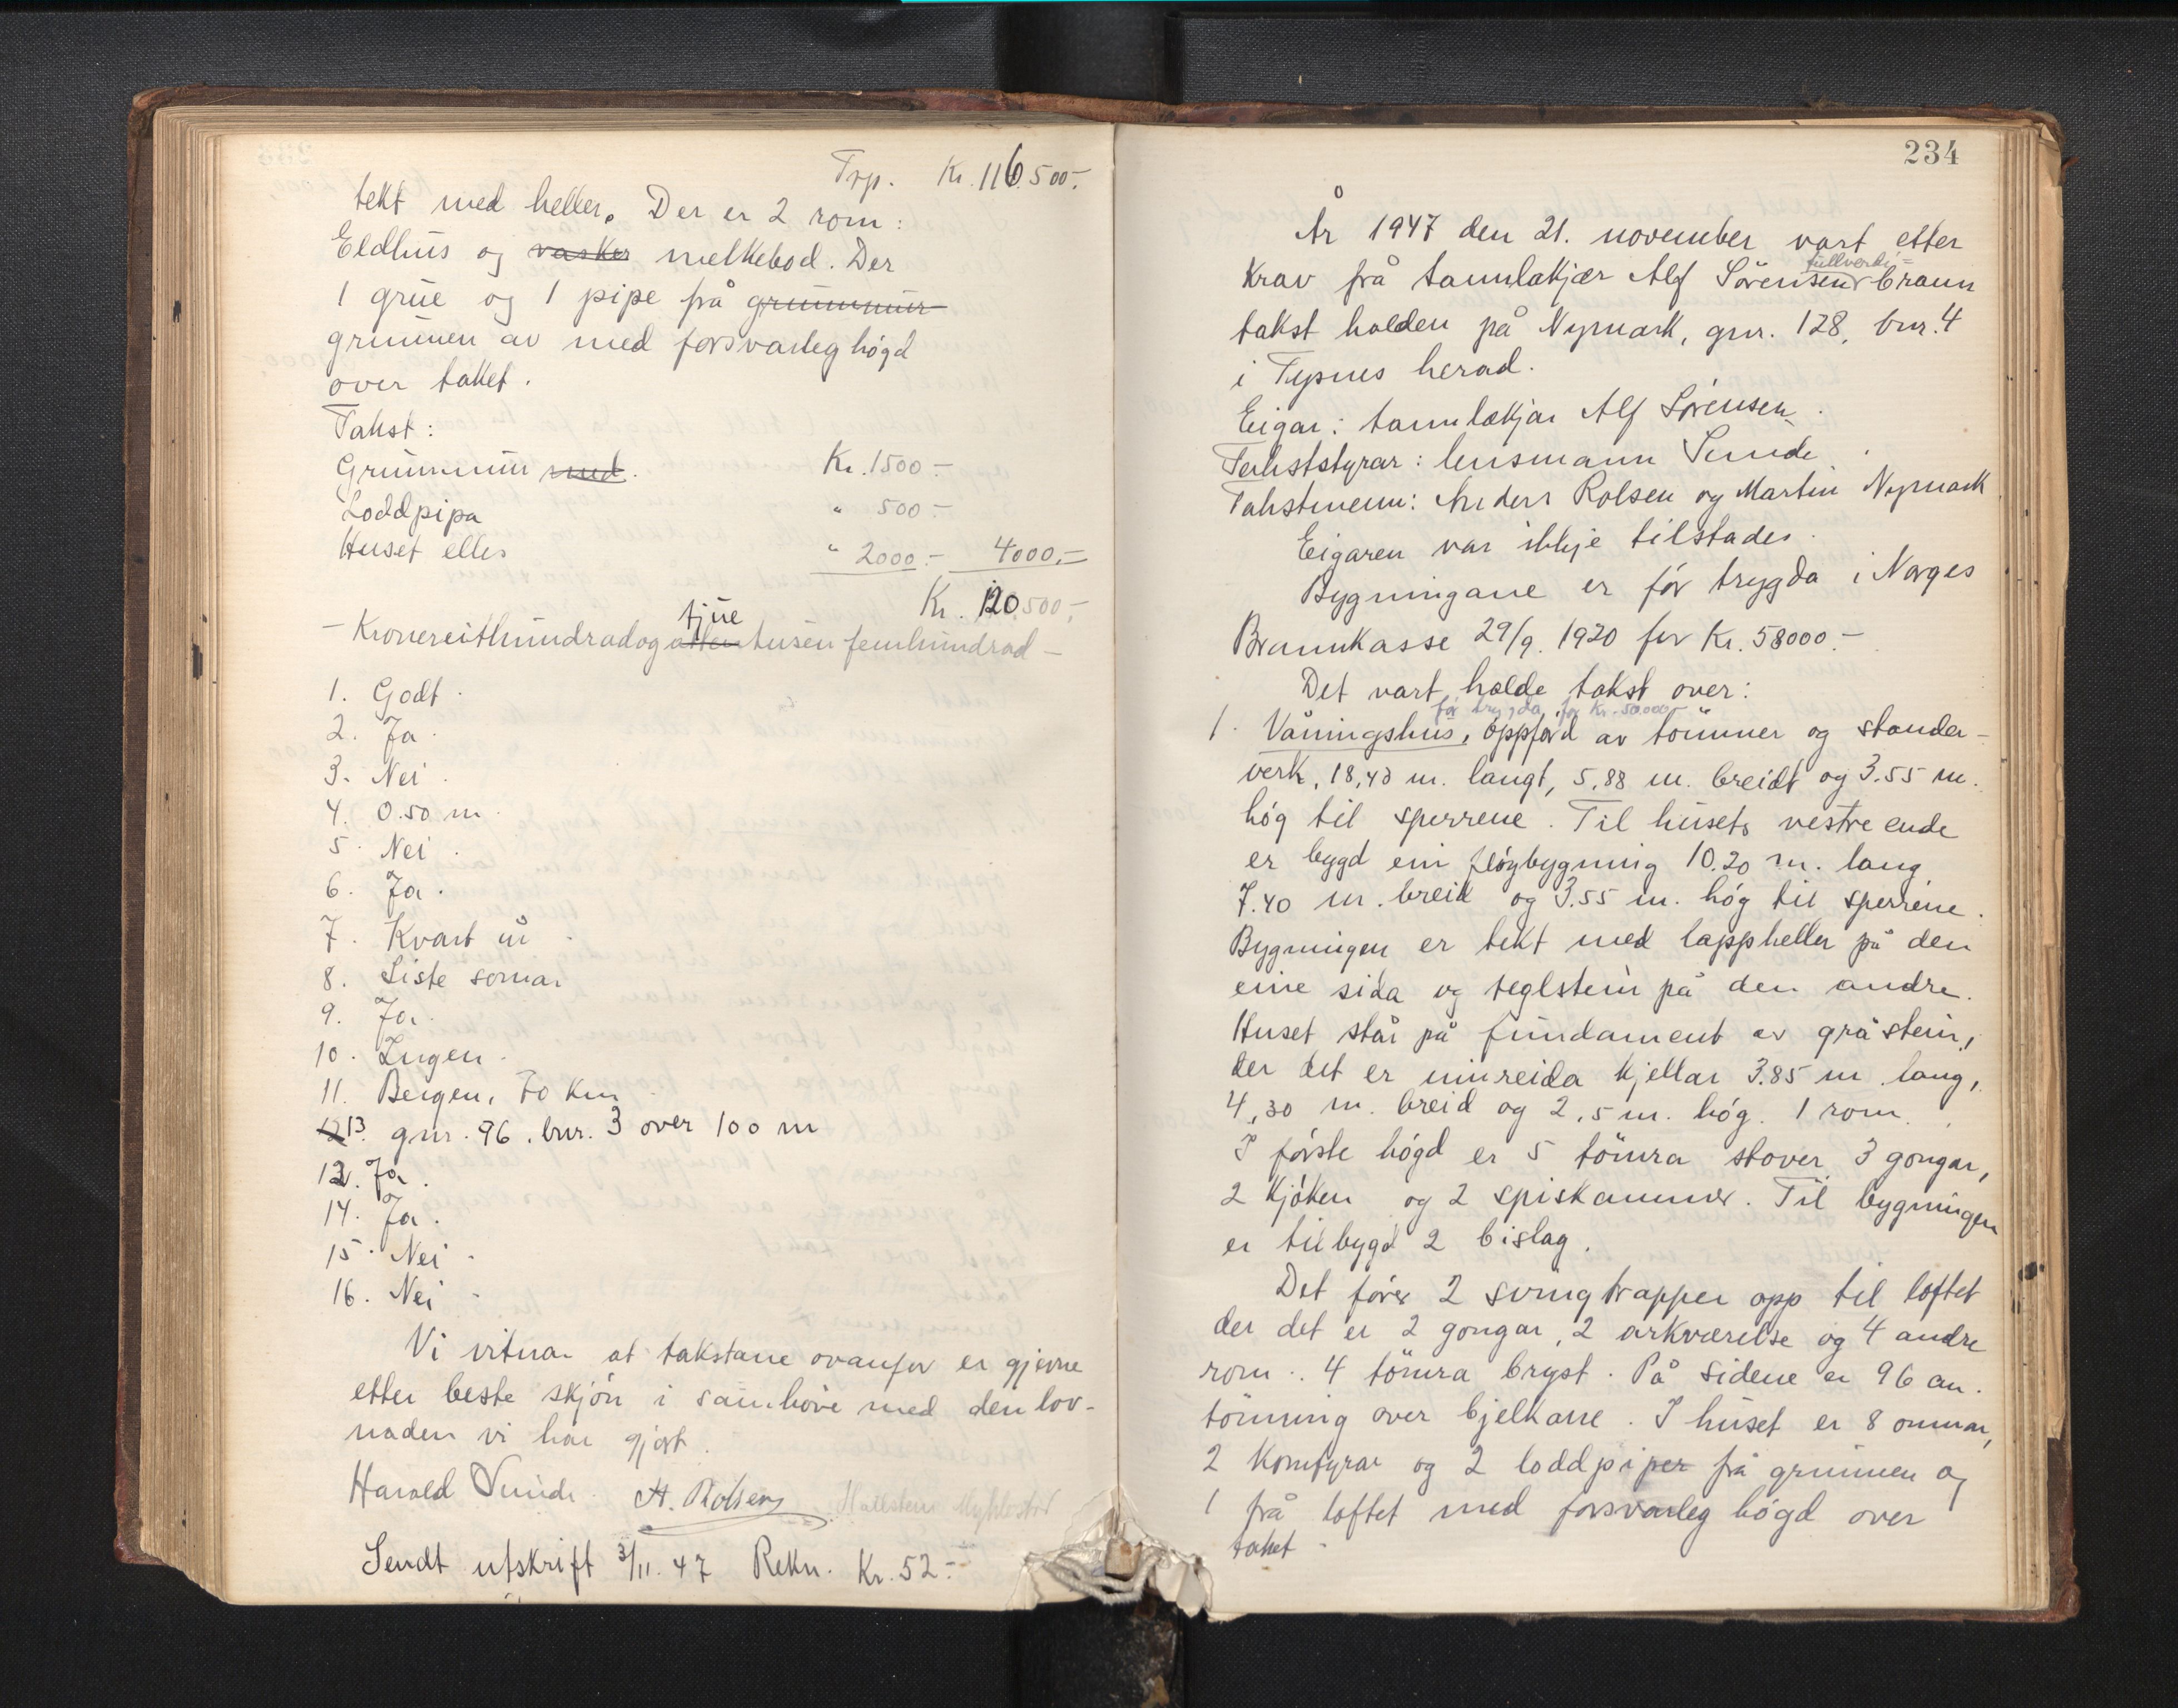 Trp. Kr. 116.500.-
tekt med heller. Der er 2 rom:
Eldhus og vasker melkebod. Der
1 grue og 1 pipe frå grunnmur
grunnen av med forsvarleg högd
over taket.
Takst:
Grunnmur med. Kr. 1500.-
Loddpipa " 500.-
Huset elles " 2000.- 4000.-
Kr. 120.500.-
tjue
- Kronereithundradogattentusen femhundrad -
1. Godt.
2. Ja.
3. Nei.
4. 0.50 m.
5. Nei.
6. Ja.
7. Kvart år.
8. Siste somar
9. Ja.
10. Ingen.
11. Bergen, 70 km
12 13. gnr. 96, bnr. 3 over 100 m
12. Ja.
14. Ja.
15. Nei.
16. Nei.
Vi vitnar at takstane ovanfor er gjevne
etter beste skjön i samhöve med den lov-
naden vi har gjort.
Harald Sunde. A. Rolsen Hallstein Myklestad
Sendt utskrift 3/11. 47 Rekn. Kr. 52.-
234
År 1947 den 21. november vart etter
fullverdi-
krav frå tannlækjar Alf Sörensen brann
takst halden på Nymark, gnr. 128, bnr. 4
i Tysnes herad.
Eigar: tannlækjar Alf Sörensen.
Takststyrar: lensmann Sunde.
Takstmenn: Anders Rolsen og Martin Nymark
Eigaren var ikkje tilstades.
Bygningane er för trygda i Norges
Brannkasse 29/9. 1920 for Kr. 58000.-
Det vart halde takst over:
för trygda for Kr. 50.000.-
1. Våningshus, oppförd av tömmer og stander-
verk, 18,40 m. langt, 5,88 m. breidt og 3.55 m.
hög til sperrene. Til husets vestre ende
er bygd ein flöybygning 10.20 m. lang
7.40 m. breid og 3.55 m. hög til sperrene.
Bygningen er tekt med lappheller på den
eine sida og teglstein på den andre.
Huset står på fundament av gråstein,
der det er innreida kjellar 3.85 m lang,
4,30 m. breid og 2,5 m. hög. 1 rom.
I förste högd er 5 tömra stover, 3 gongar,
2 kjöken og 2 spiskammer. Til bygningen
er tilbygd 2 bislag.
Det förer 2 svingtrapper opp til loftet
der det er 2 gongar, 2 arkværelse og 4 andre
rom. 4 tömra bryst. På sidene er 96 cm.
tömring over bjelkane. I huset er 8 omnar,
2 komfyrar og 2 loddpiper frå grunnen og
1 frå loftet med forsvarleg högd over
taket.